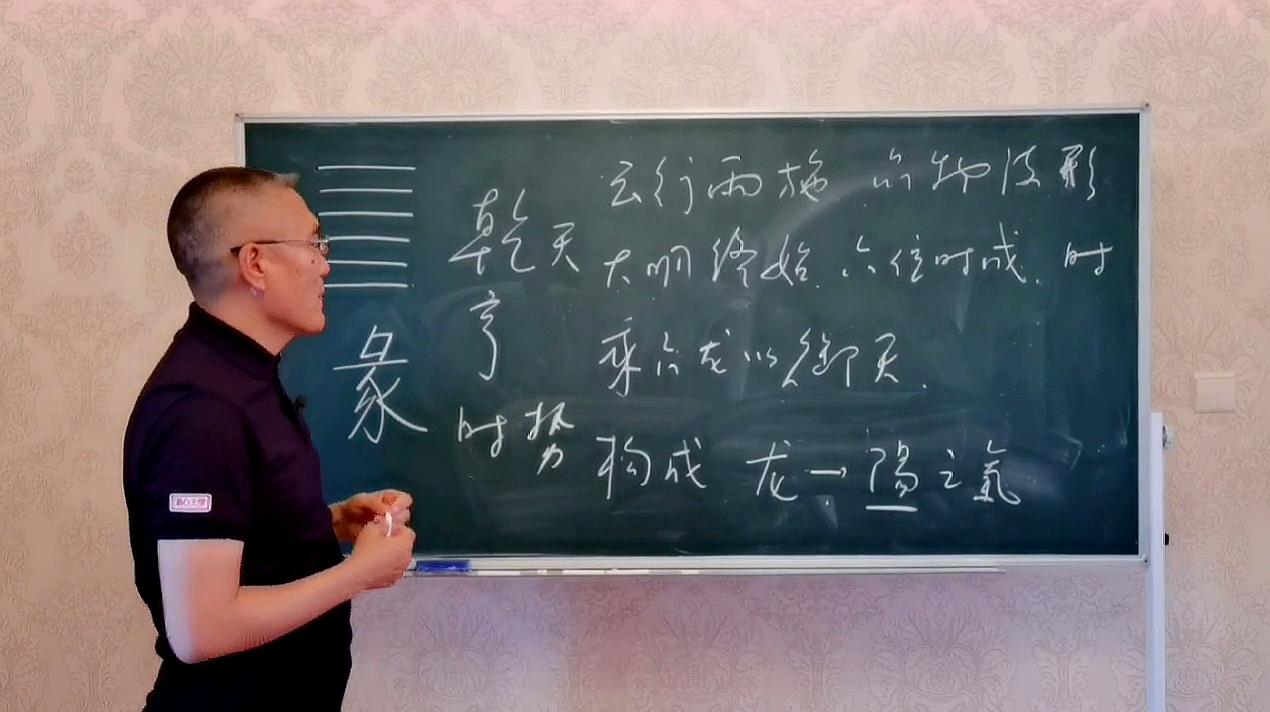 彖
乾天
亨
时势
云行雨施 品物流形
大明终始 六位时成. 时
乘六龙以御天.
构成 龙→陽之氣